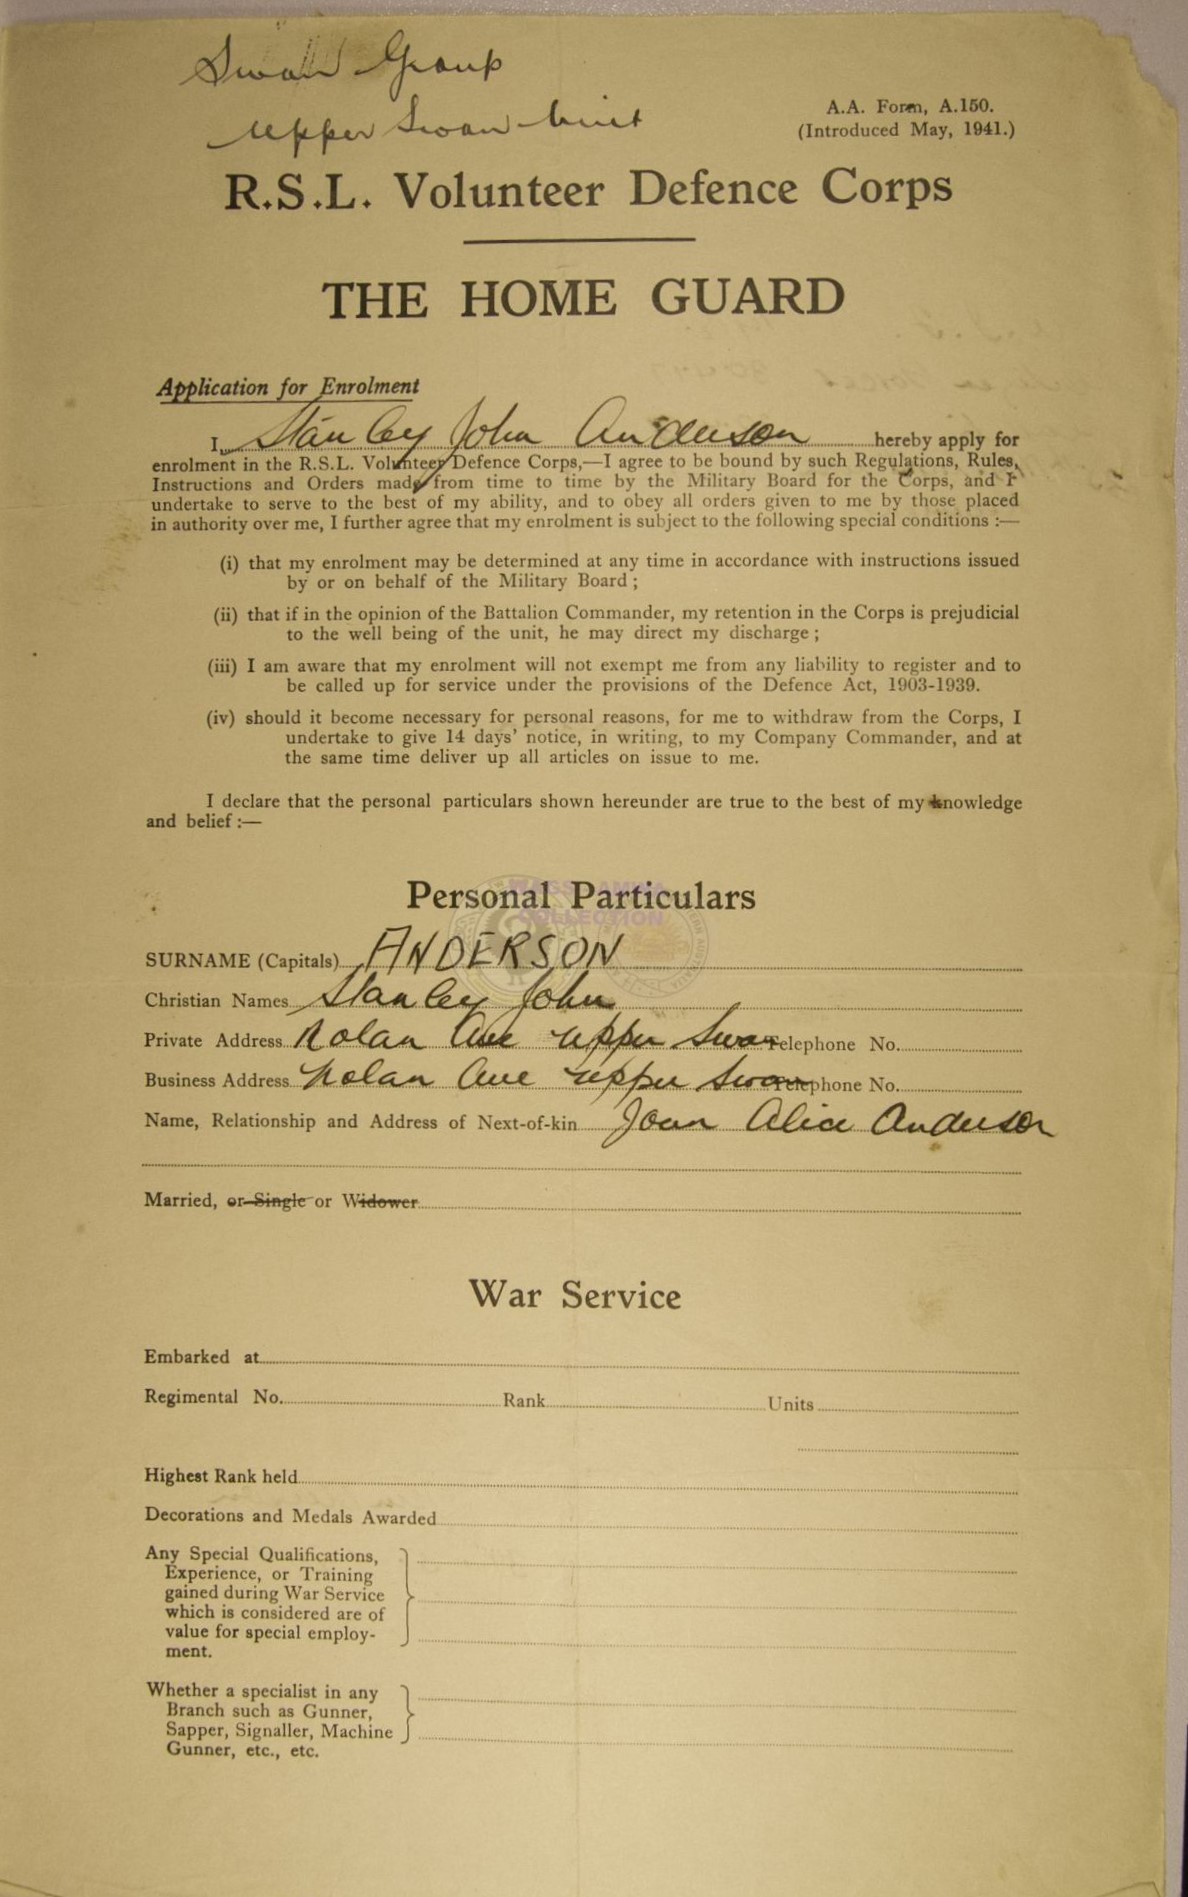 Swan Group
Upper Swan Unit
A.A. Form, A.150.
(Introduced May, 1941.)
R.S.L. Volunteer Defence Corps
THE HOME GUARD
Application for Enrolment
I, Stanley John Anderson hereby apply for
enrolment in the R.S.L. Volunteer Defence Corps,—I agree to be bound by such Regulations, Rules,
Instructions and Orders made from time to time by the Military Board for the Corps, and I
undertake to serve to the best of my ability, and to obey all orders given to me by those placed
in authority over me, I further agree that my enrolment is subject to the following special conditions :—
(i) that my enrolment may be determined at any time in accordance with instructions issued
by or on behalf of the Military Board ;
(ii) that if in the opinion of the Battalion Commander, my retention in the Corps is prejudicial
to the well being of the unit, he may direct my discharge ;
(iii) I am aware that my enrolment will not exempt me from any liability to register and to
be called up for service under the provisions of the Defence Act, 1903-1939.
(iv) should it become necessary for personal reasons, for me to withdraw from the Corps, I
undertake to give 14 days' notice, in writing, to my Company Commander, and at
the same time deliver up all articles on issue to me.
I declare that the personal particulars shown hereunder are true to the best of my knowledge
and belief :—
Personal Particulars
COLLECTION
SURNAME (Capitals) ANDERSON
Christian Names Stanley John
Private Address Nolan Ave Upper Swan Telephone No.
Business Address Nolan Ave Upper Swan Telephone No.
Name, Relationship and Address of Next-of-kin Joan Alice Anderson
Married, or Single or Widower
War Service
Embarked at
Regimental No. Rank Units
Highest Rank held
Decorations and Medals Awarded
Any Special Qualifications,
Experience, or Training
gained during War Service
which is considered are of
value for special employ-
ment.
Whether a specialist in any
Branch such as Gunner,
Sapper, Signaller, Machine
Gunner, etc., etc.